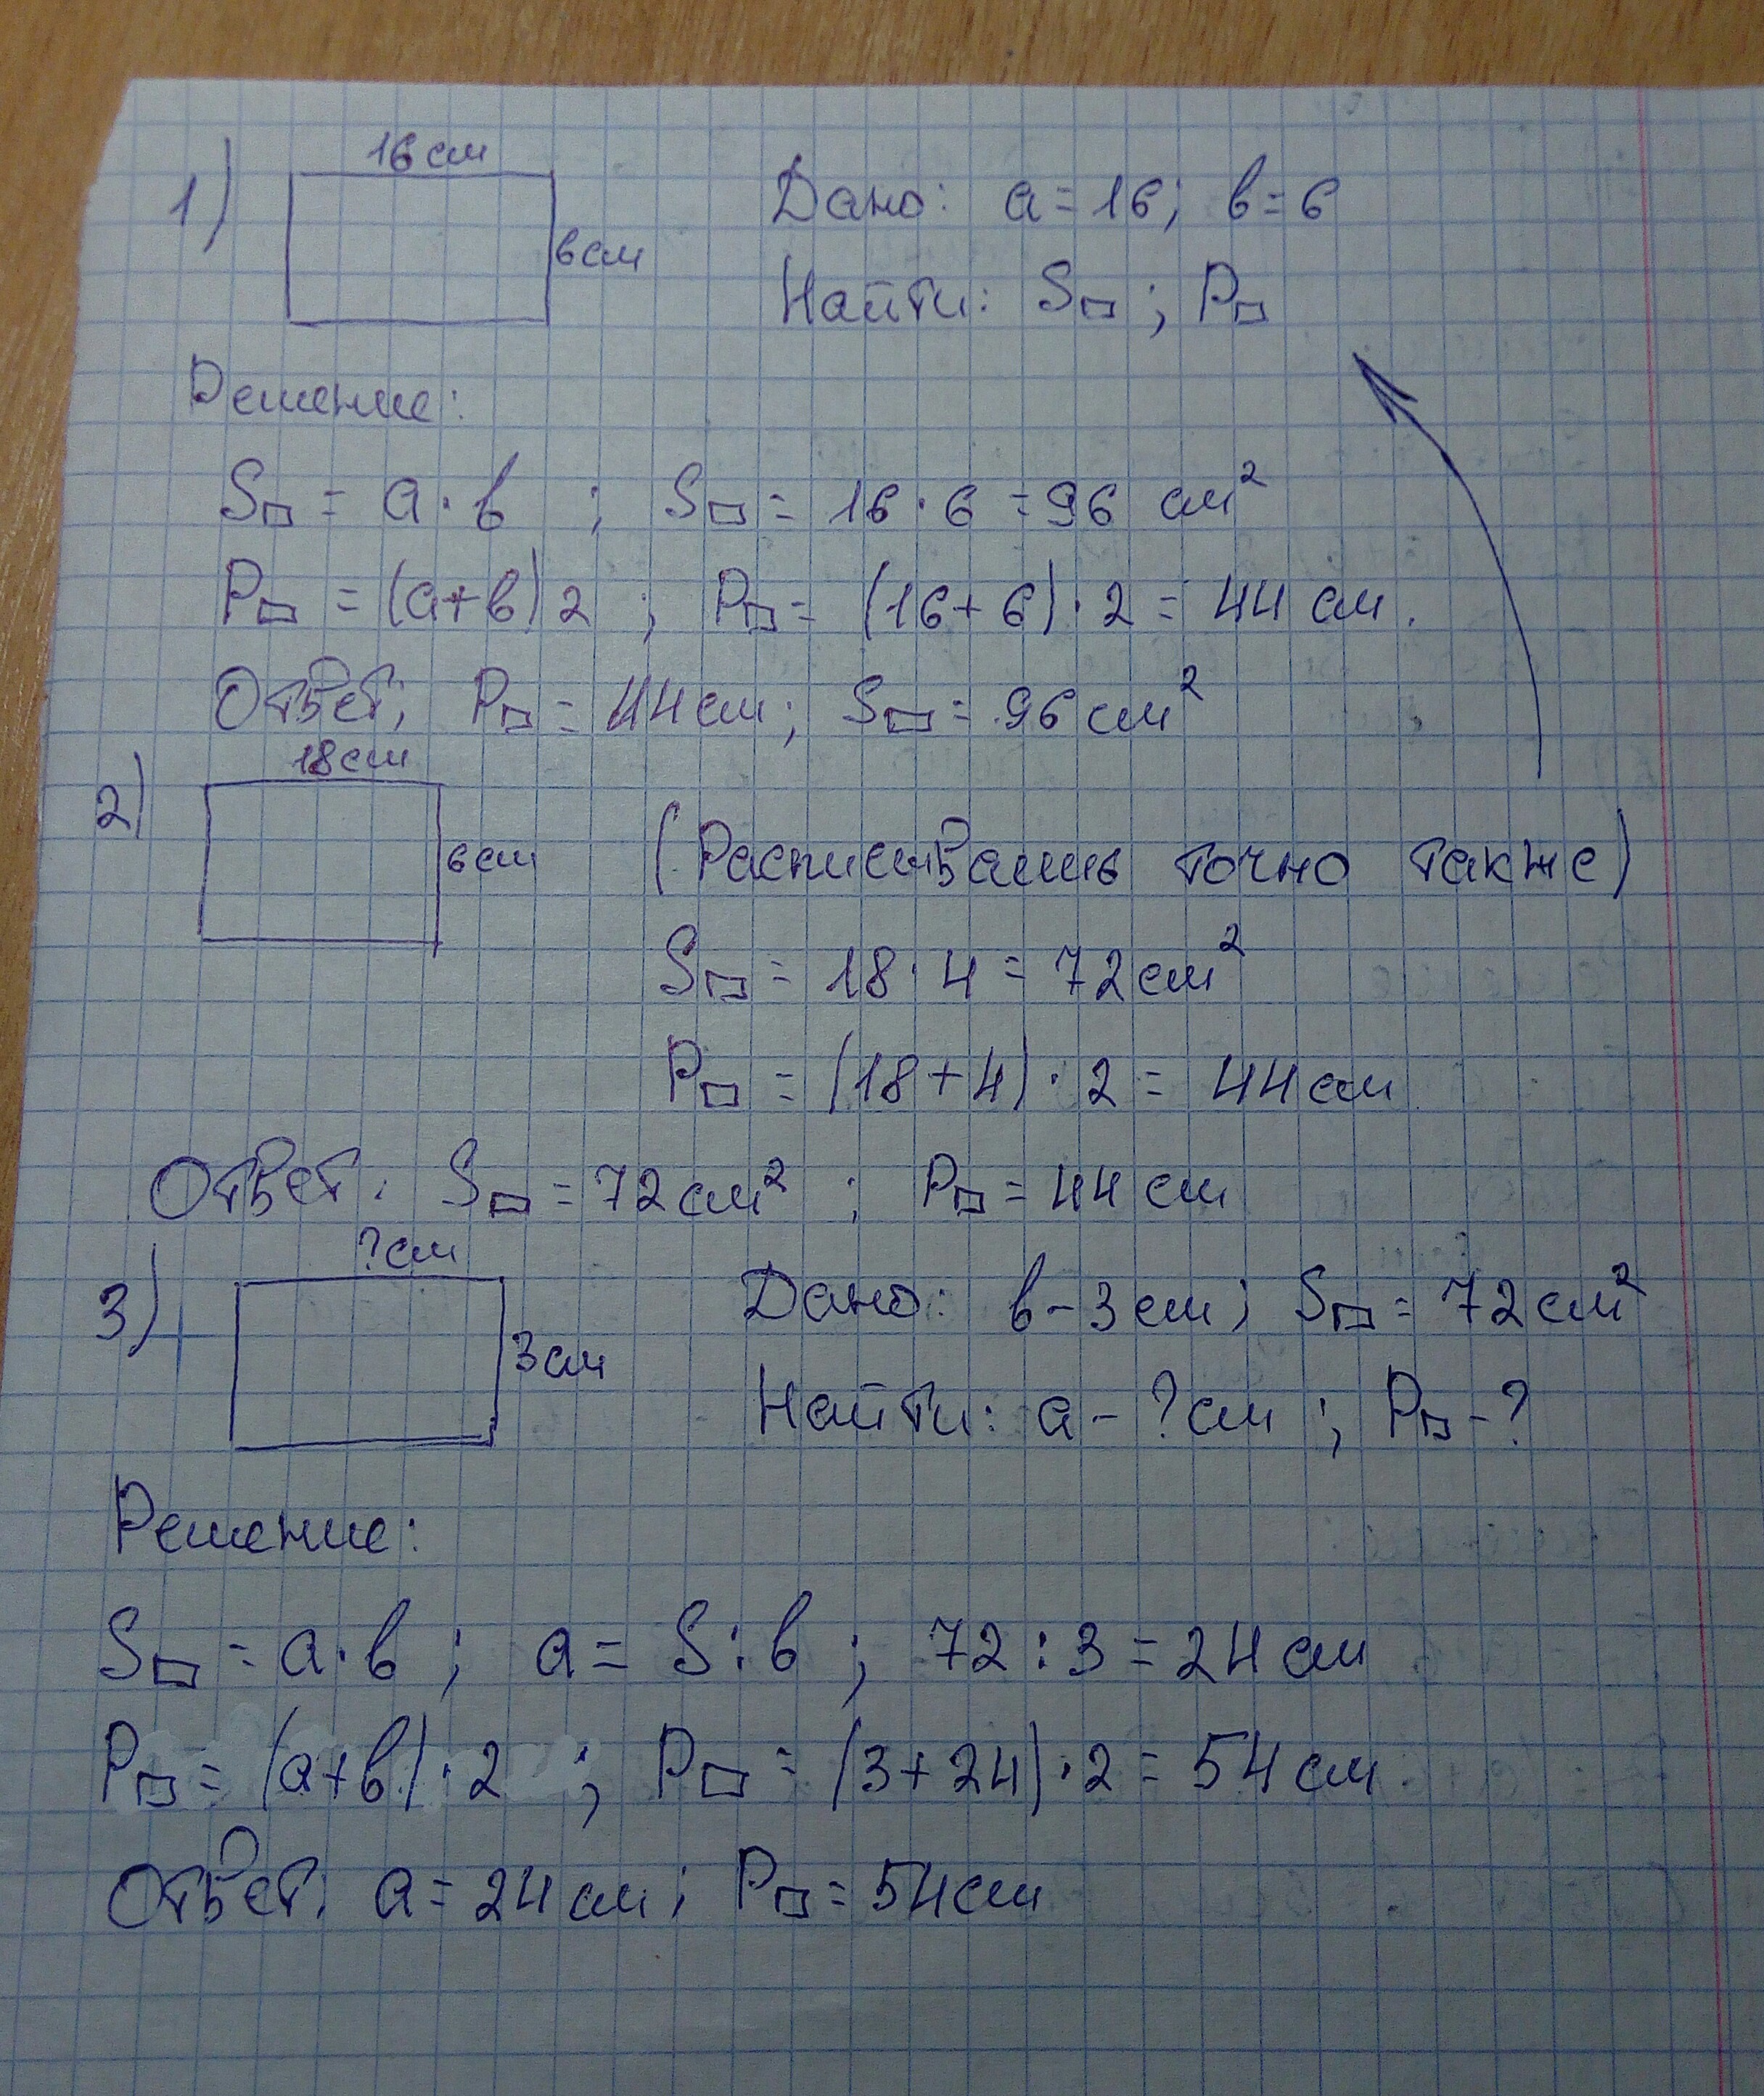 1) 16 см
6 см
Дано: a = 16; в = 6
Найти: S▭ ; P▭
Решение:
S▭ = a · в ; S▭ = 16 · 6 = 96 см²
P▭ = (a+в) 2 ; P▭ = (16+6) · 2 = 44 см.
Ответ: P▭ = 44 см; S▭ = 96 см²
2) 18 см
6 см
(Расписываешь точно также)
S▭ = 18 · 4 = 72 см²
P▭ = (18+4) · 2 = 44 см
Ответ. S▭ = 72 см² ; P▭ = 44 см
3) ? см
3 см
Дано: в – 3 см; S▭ = 72 см²
Найти: a – ? см ; P▭ – ?
Решение:
S▭ = a · в ; a = S : в ; 72 : 3 = 24 см
P▭ = (a+в) · 2 ; P▭ = (3+24) · 2 = 54 см
Ответ: a = 24 см ; P▭ = 54 см